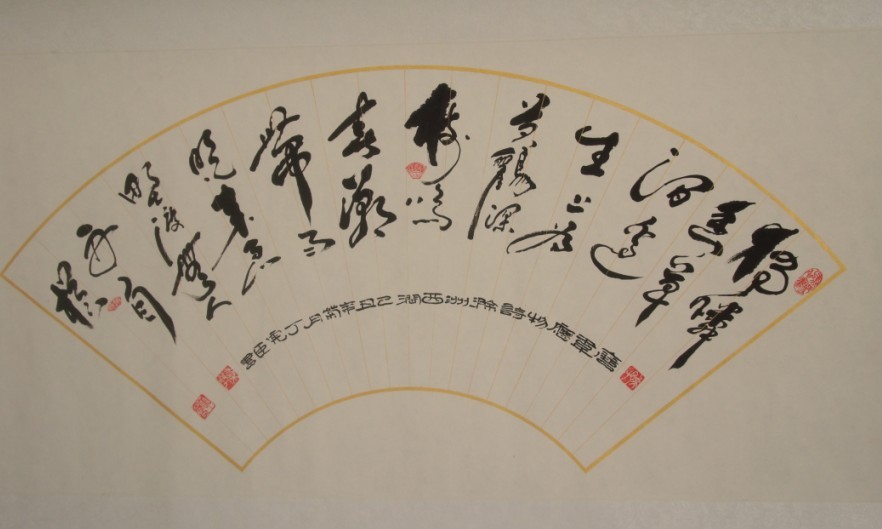 獨憐
幽草
澗邊
生上有
黃鸝深
樹鳴
春潮
帶雨
晚來急
野渡無人
舟自
橫
唐韋應物詩滁洲西澗己丑年月